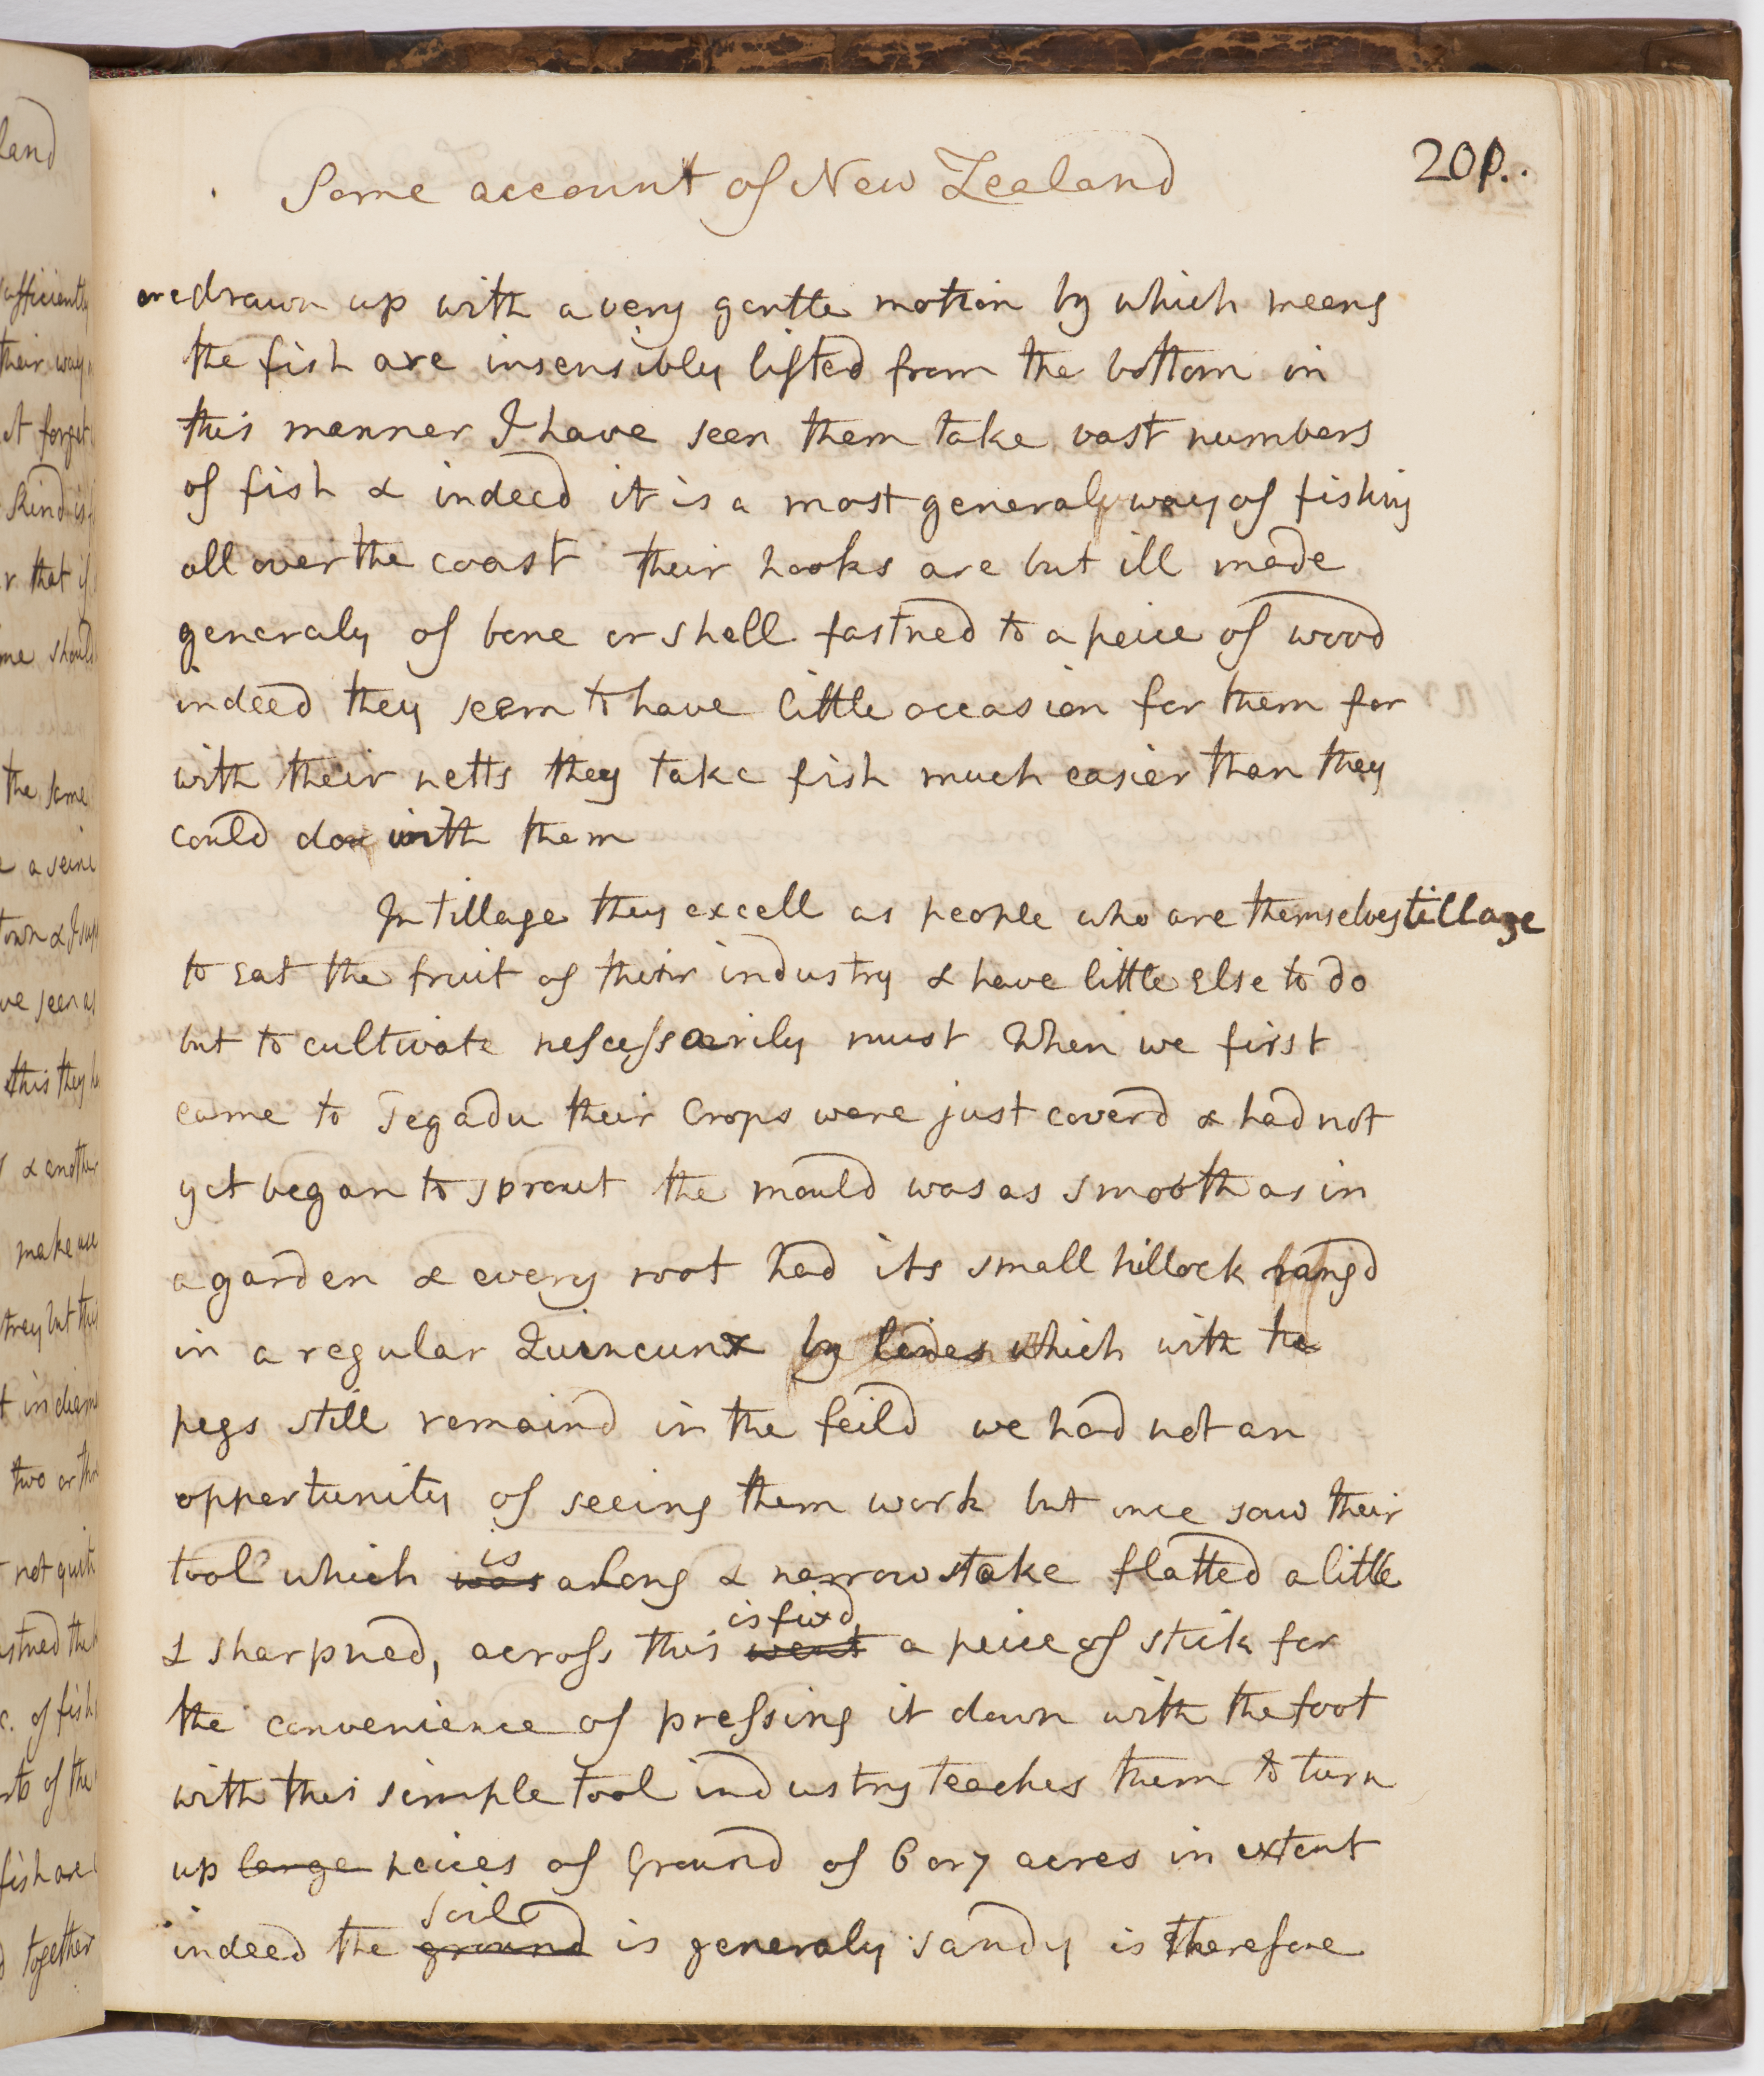 Some account of New Zealand
20p..
are drawn up with a very gentle motion by which means
the fish are insensibly lifted from the bottom in
this manner I have seen them take vast numbers
of fish & indeed it is a most general way of fishing
all over the coast their hooks are but ill made
generaly of bone or shell fastned to a peice of wood
indeed they seem to have little occasion for them for
with their netts they take fish much easier than they
could do with them
In tillage they excell as people who are themselves tillage
to eat the fruit of their industry & have little else to do
but to cultivate nescessarily must When we first
came to Tegadu their Crops were just coverd & had not
yet began to sprout the mould was as smooth as in
a garden & every root had its small hillock rangd
in a regular Quincunx by lines which with the
pegs still remaind in the feild we had not an
oppertunity of seeing them work but once saw their
is
tool which was a long & narrow stake flatted a little
is fixd
& sharpned, across this went a peice of stick for
the convenience of pressing it down with the foot
with this simple tool industry teaches them to turn
up large peices of Ground of 6 or 7 acres in extent
soile
indeed the ground is generaly sandy is therefore
land
sufficiently
their way
forget
kind is
r that if
me should
the same
a seine
town & I
ve seen as
this they
& another
make use
trey but they
two or
not quite
stned the
c. of fish
of the
fish are
together